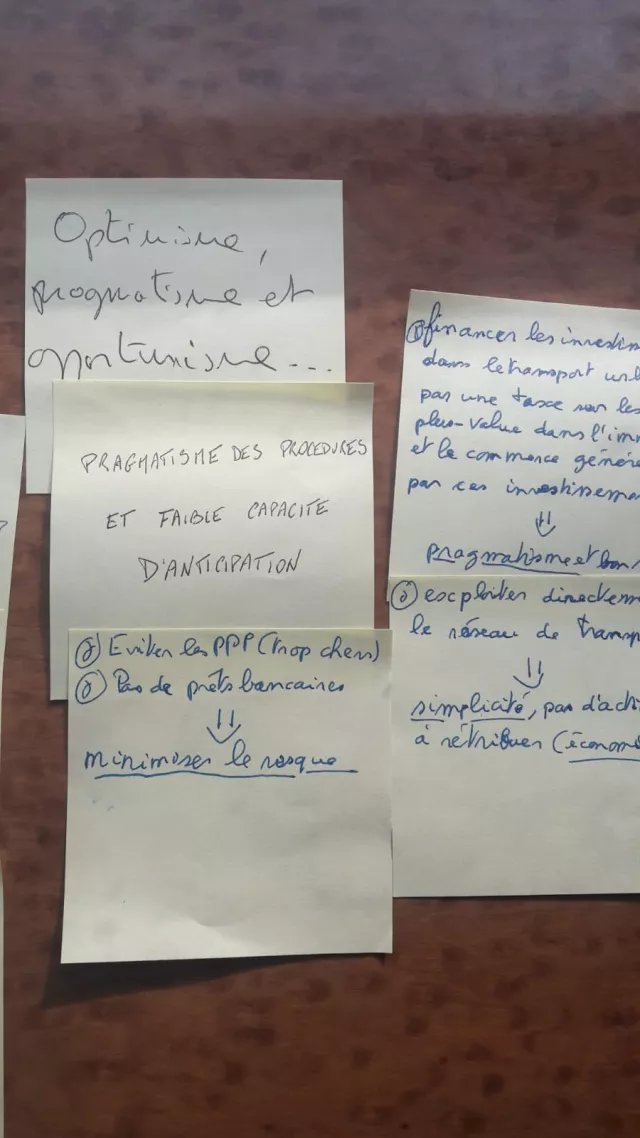 Optimisme,
pragmatisme et
opportunisme...
PRAGMATISME DES PROCEDURES
ET FAIBLE CAPACITE
D'ANTICIPATION
Eviter les PPP (trop chers)
Pas de prêts bancaires
⇓
minimiser le risque
financer les investis
dans le transport urb
par une taxe sur les
plus-value dans l'imm
et le commerce génér
par ces investissemen
⇓
pragmatisme et bon
exploiter directeme
le réseau de transp
⇓
simplicité, pas d'act
à rétribuer (économi